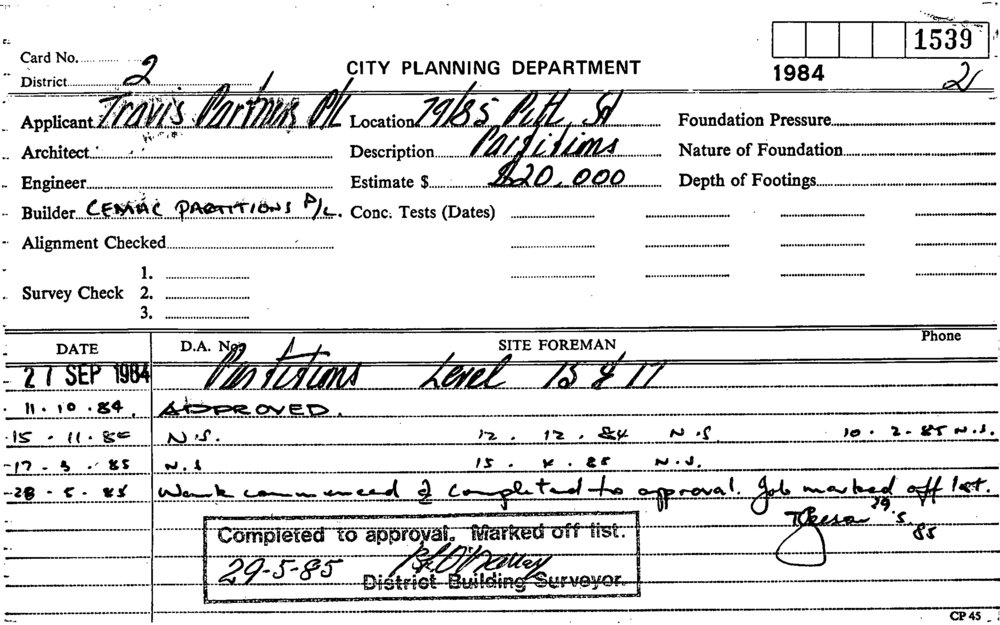 1539
Card No.
District 2 CITY PLANNING DEPARTMENT 1984 2
Applicant Travis Partners P/L Location 79/85 Pitt St Foundation Pressure
Architect Description Partitions Nature of Foundation
Engineer Estimate $ $20,000 Depth of Footings
Builder CEMAC PARTITIONS P/L. Conc. Tests (Dates)
Alignment Checked
1.
Survey Check 2.
3.
DATE D.A. No. SITE FOREMAN Phone
21 SEP 1984 Partitions Level 15 & 17
11.10.84. APPROVED.
15.11.84 N.S. 12.12.84 N.S 10.2.85 N.S.
17.3.85 N.S 15.4.85 N.S.
28.5.85 Work commenced & completed to approval. Job marked off list.
29.5.85
Completed to approval. Marked off list.
29-5-85
District Building Surveyor.
CP 45